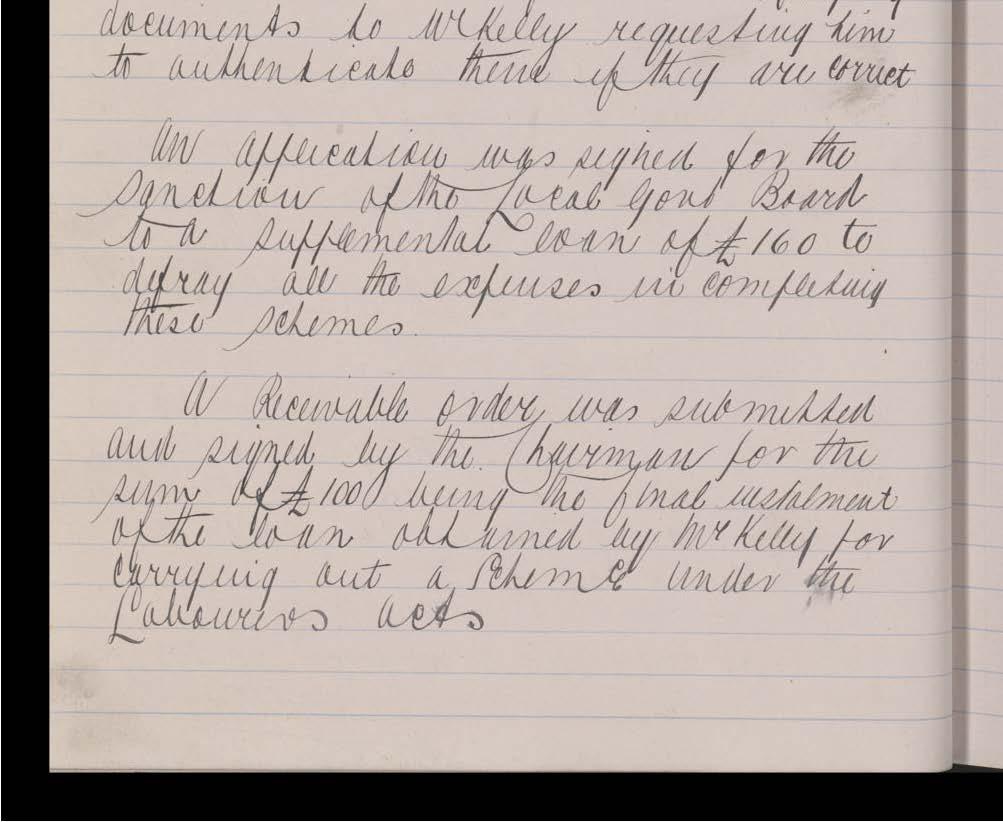 documents to Mr Kelly requesting him
to authenticate them if they are correct
An application was signed for the
Sanction of the Local Govt Board
to a supplemental loan of £160 to
defray all the expenses in completing
these schemes.
A Receivable order was submitted
and signed by the Chairman for the
sum of £100 being the final instalment
of the loan obtained by Mr Kelly for
carrying out a Scheme under the
Labourers acts